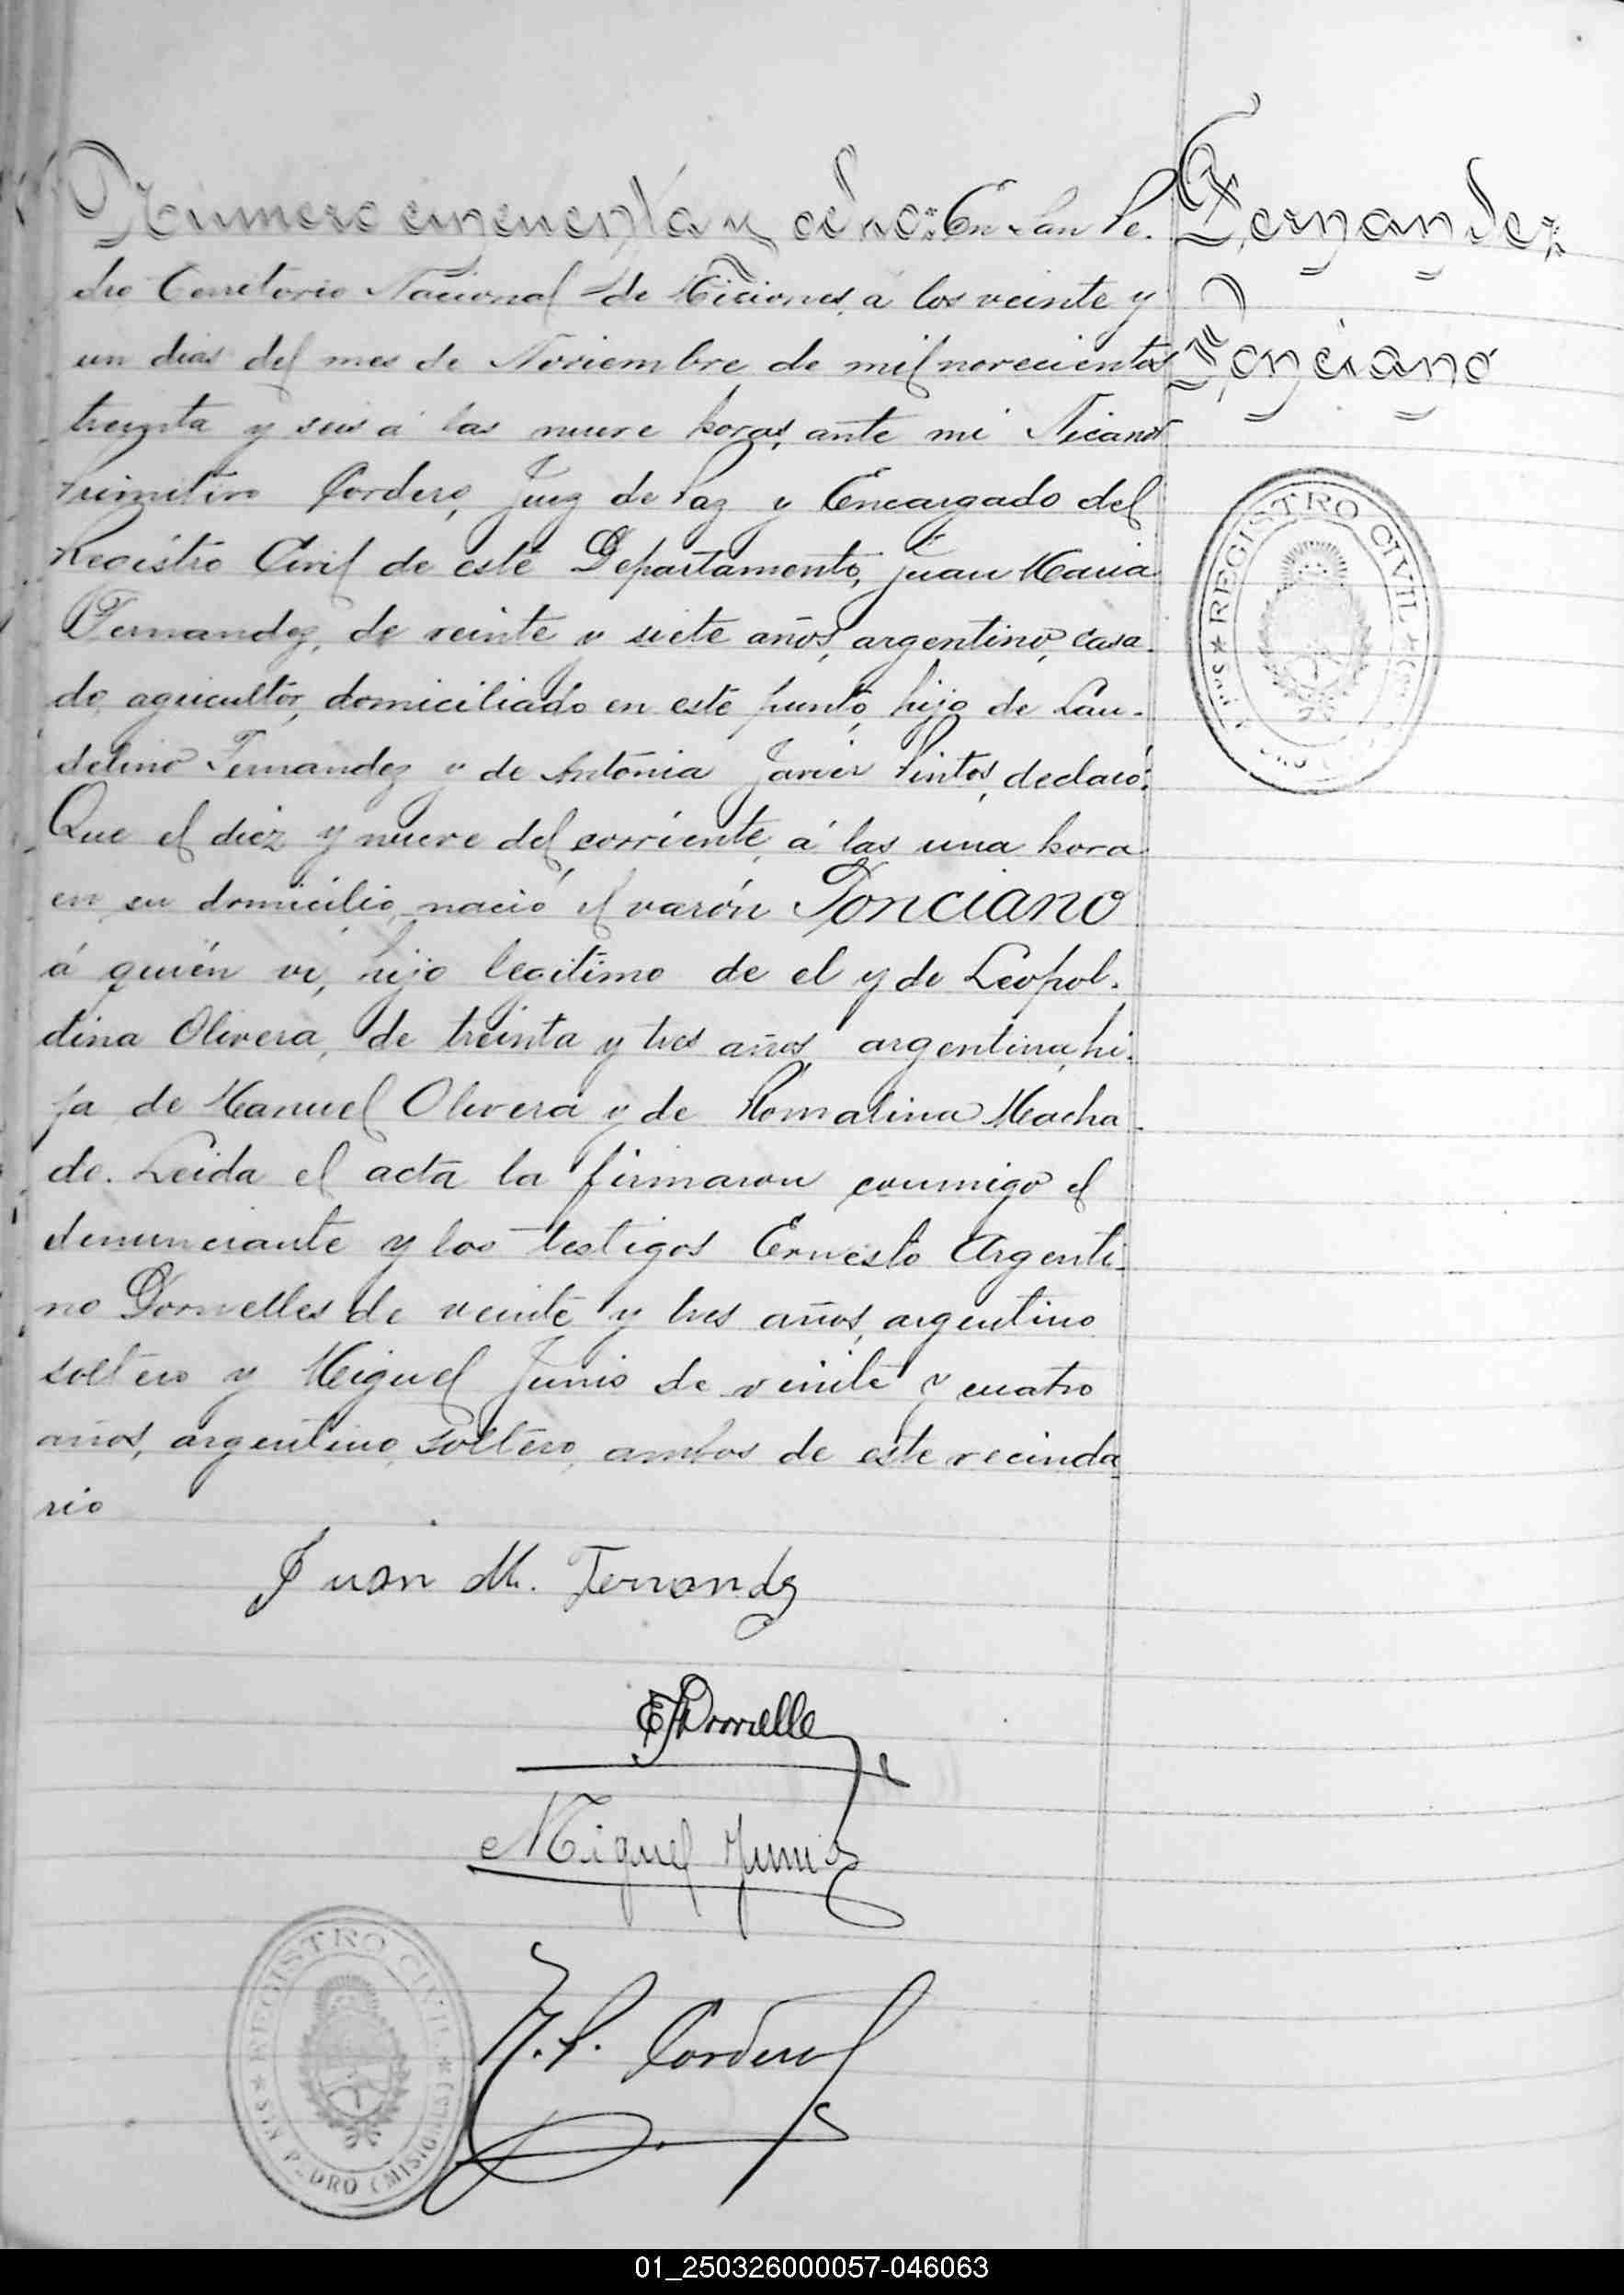 Número cincuenta y ocho: En San Pe-
dro Territorio Nacional de Miciones, á los veinte y
un dias del mes de Noviembre de mil novecientos
treinta y seis á las nueve horas, ante mi Nicanor
Primitivo Cordero, Juez de Paz y Encargado del
Registro Civil de este Departamento, Juan Maria
Fernandez, de veinte y siete años, argentino, casa-
do, agricultor, domiciliado en este punto, hijo de Lau-
delino Fernandez y de Antonia Javier Pintos, declaró:
Que el diez y nueve del corriente, á las una hora
en su domicilio, nació el varón Ponciano
á quién vi, hijo legitimo de el y de Leopol-
dina Olivera, de treinta y tres años, argentina, hi-
ja de Manuel Olivera y de Romalina Macha-
do. Leida el acta la firmaron conmigo el
denunciante y los testigos Ernesto Argenti-
no Dornelles de veinte y tres años, argentino
soltero y Miguel Junio de veinte y cuatro
años, argentino, soltero, ambos de este vecinda
rio
Fernandez
Ponciano
REGISTRO CIVIL
Juan M. Fernandz
Miguel Junio
N. P. Cordero
REGISTRO CIVIL
SAN PEDRO (MISIONES)
01_250326000057-046063